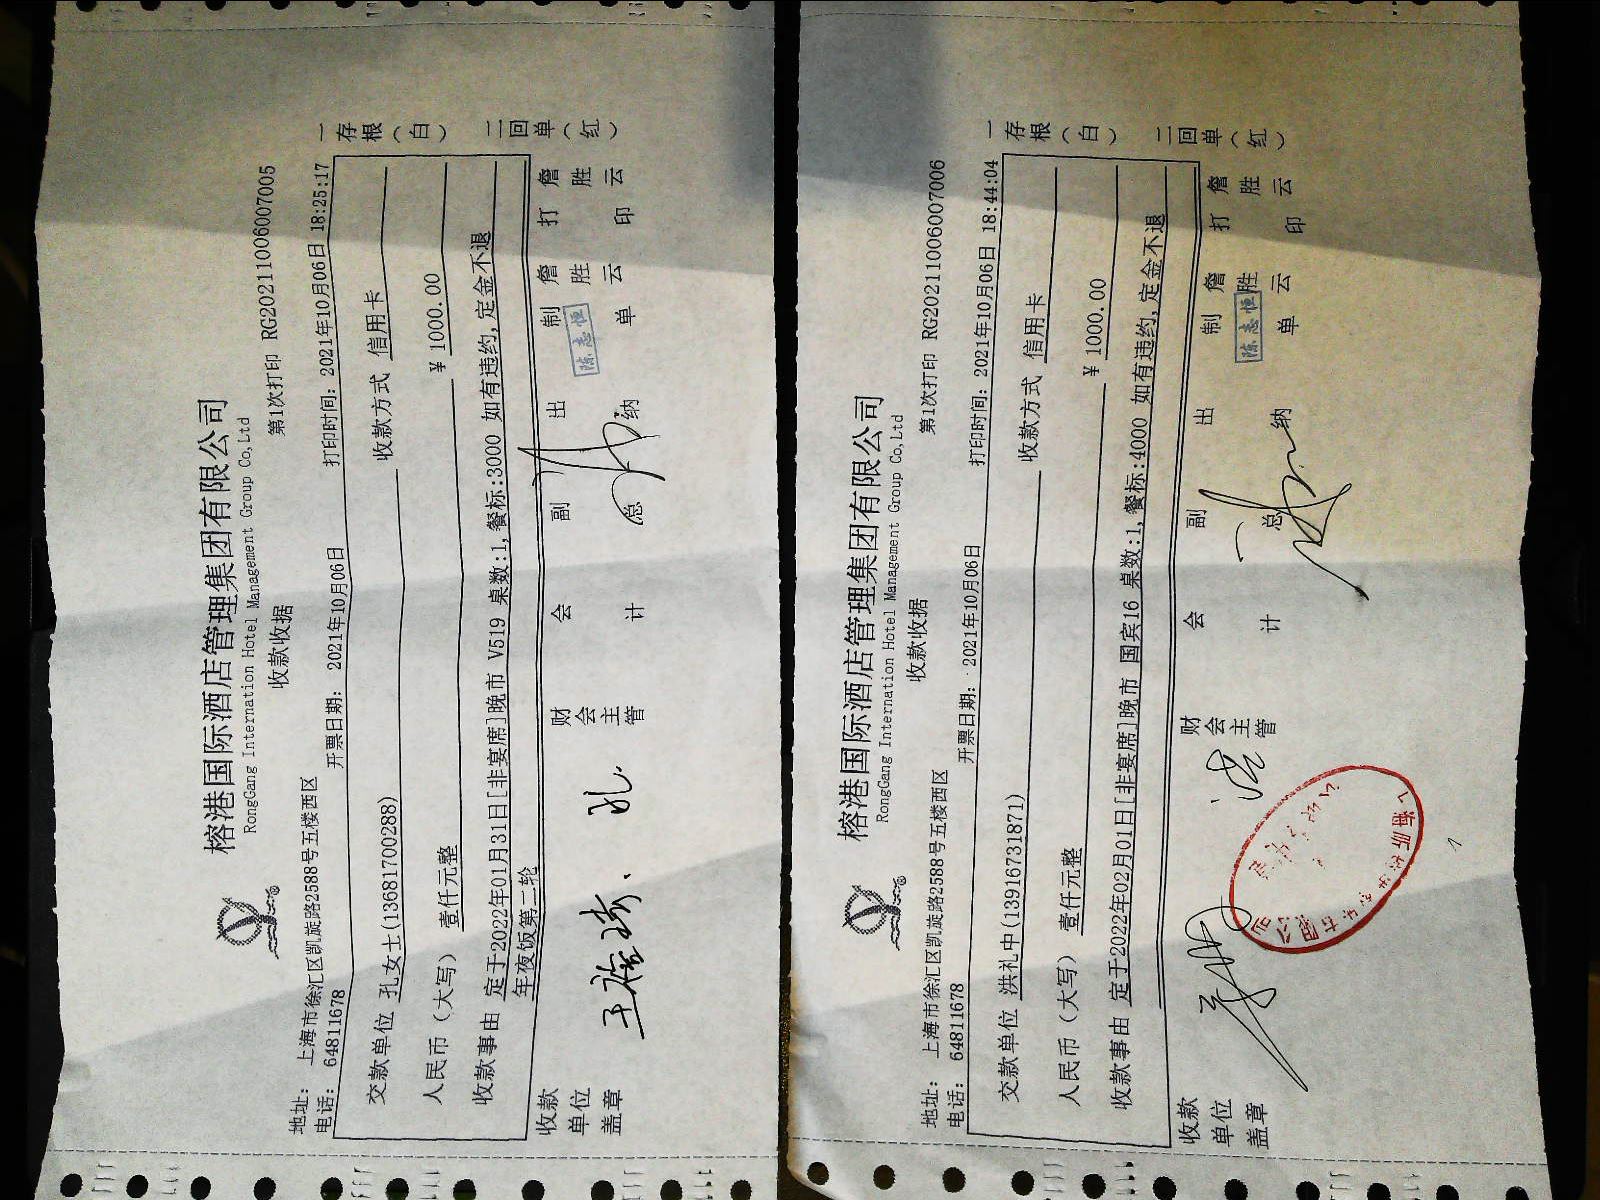 榕港国际酒店管理集团有限公司
RongGang Internation Hotel Management Group Co,Ltd
收款收据
第1次打印 RG20211006007005
地址: 上海市徐汇区凯旋路2588号五楼西区
电话: 64811678
开票日期: 2021年10月06日
打印时间: 2021年10月06日 18:25:17
交款单位 孔女士(13681700288)
收款方式 信用卡
人民币(大写) 壹仟元整
¥ 1000.00
收款事由 定于2022年01月31日[非宴席]晚市 V519 桌数:1,餐标:3000 如有违约,定金不退
年夜饭第二轮
收款单位盖章
财会主管
会计
副总
出纳
陈志恒
制单 詹胜云
打印 詹胜云
一存根(白) 二回单(红)
榕港国际酒店管理集团有限公司
RongGang Internation Hotel Management Group Co,Ltd
收款收据
第1次打印 RG20211006007006
地址: 上海市徐汇区凯旋路2588号五楼西区
电话: 64811678
开票日期: 2021年10月06日
打印时间: 2021年10月06日 18:44:04
交款单位 洪礼中(13916731871)
收款方式 信用卡
人民币(大写) 壹仟元整
¥ 1000.00
收款事由 定于2022年02月01日[非宴席]晚市 国宾16 桌数:1,餐标:4000 如有违约,定金不退
收款单位盖章
财会主管
会计
副总
出纳
陈志恒
制单 詹胜云
打印 詹胜云
一存根(白) 二回单(红)